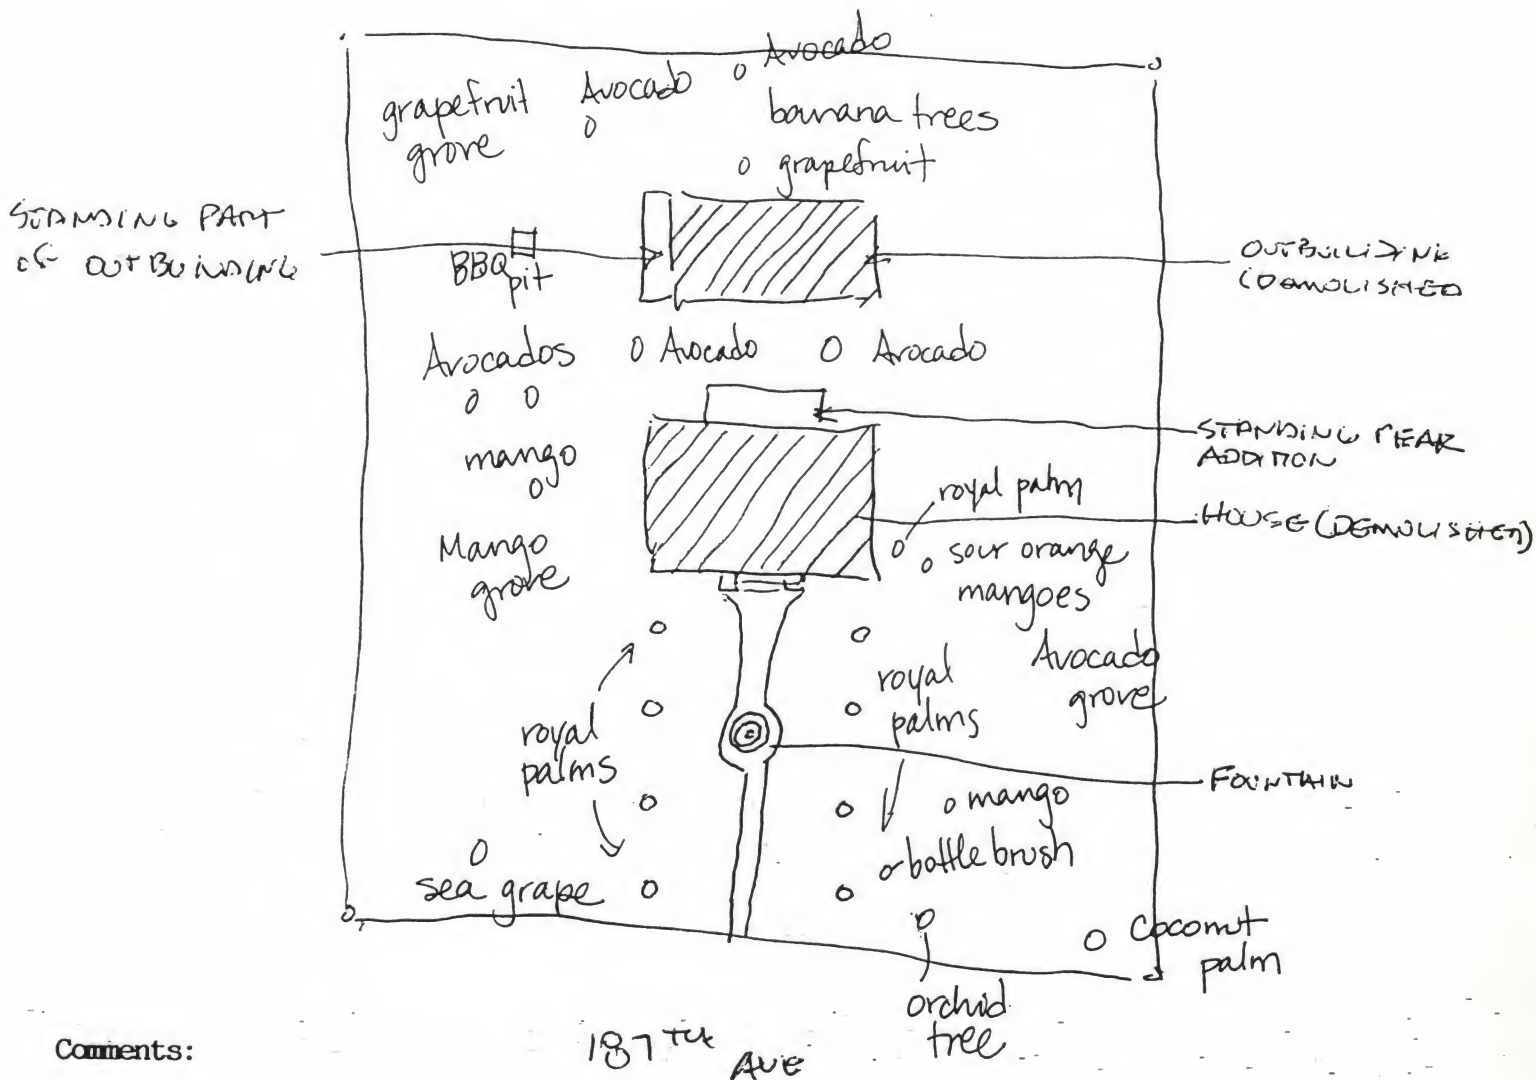 Avocado
Avocado
grapefruit
grove
banana trees
grapefruit
STANDING PART
OF OUTBUILDING
BBQ
pit
OUTBUILDING
(DEMOLISHED
Avocados
Avocado
Avocado
STANDING REAR
ADDITION
mango
royal palm
HOUSE (DEMOLISHED)
Mango
grove
sour orange
mangoes
Avocado
grove
royal
palms
royal
palms
FOUNTAIN
mango
bottle brush
sea grape
Coconut
palm
orchid
tree
Comments:
187TH AVE